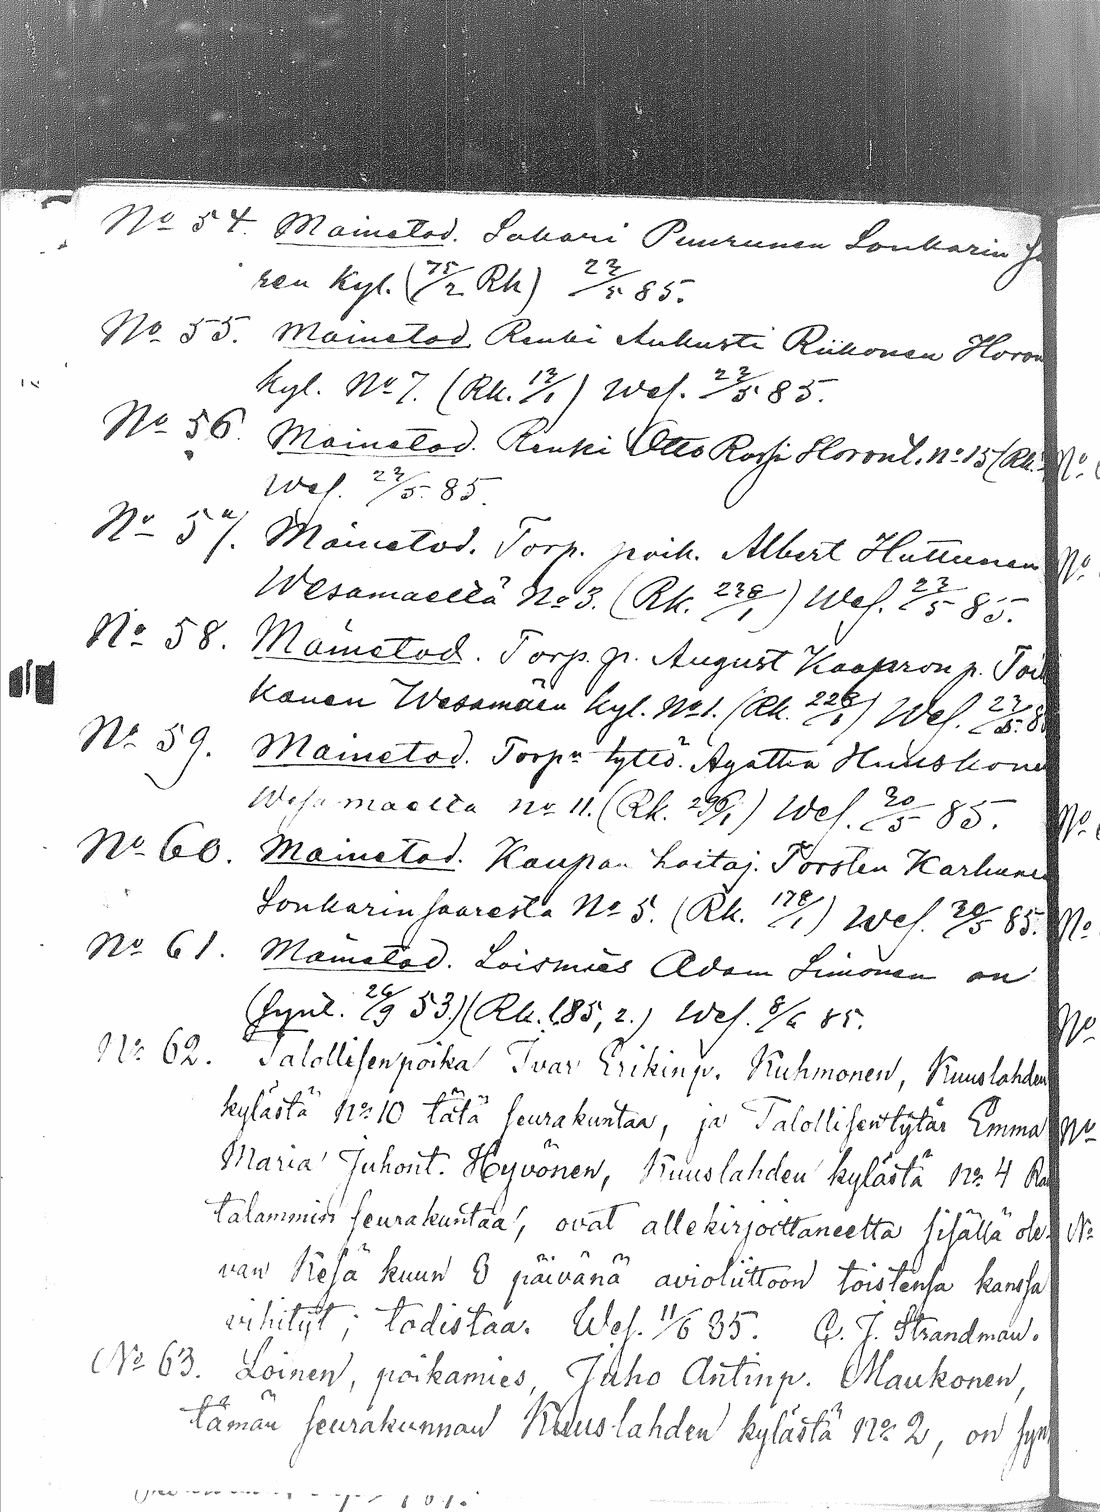 No 54. Mainetod. Sakari Puurunen Sonkarin Saa
ren Kyl. (75/2 Rk) 23/5 85.
No 55. Mainetod. Renki Aukusti Riikonen Horon
Kyl. No 7. (Rk. 13/1) Wes. 23/5 85.
No 56. Mainetod. Renki Otto Rossi Horonl. No 15 (Rk.
Wes. 23/5 85.
No 57. Mainetod. Torp. poik. Albert Huttunen
Wesamaeltä No 3. (Rk. 238/1) Wes. 23/5 85.
No 58. Mainetod. Torp. p. August Kaapron p. Toi
kanen Wesamäen Kyl. No 1. (Rk. 228/1) Wes. 23/5 8
No 59. Mainetod. Torpn tyttö. Agatha Huuskone
Wesamaelta no 11. (Rk. 296/1) Wes. 30/5 85.
No 60. Mainetod. Kaupan hoitaj. Torsten Karhune
Sonkarinsaaresta No 5. (Rk. 178/1) Wes. 30/5 85.
No 61. Mainetod. Loismies Adam Simonen on
(synt. 26/9 53.) (Rk. 185, 2.) Wes. 8/6 85.
No 62. Talollisenpoika Ivar Erikinp. Kuhmonen, Kuuslahden
kylästä No 10 tätä seurakuntaa, ja Talollisentytär Emma
Maria Juhont. Hyvönen, Kuuslahden kylästä No 4 Rau
talammin seurakuntaa, ovat allekirjoittaneelta sisällä ole-
van Kesä kuun 8 päivänä avioliittoon toistensa kanssa
vihityt; todistaa. Wes. 11/6 85. C. J. Strandman.
No 63. Loinen, poikamies, Juho Antinp. Maukonen,
tämän seurakunnan Kuuslahden kylästä No 2, on syn
No
No
No
No
No
No
No